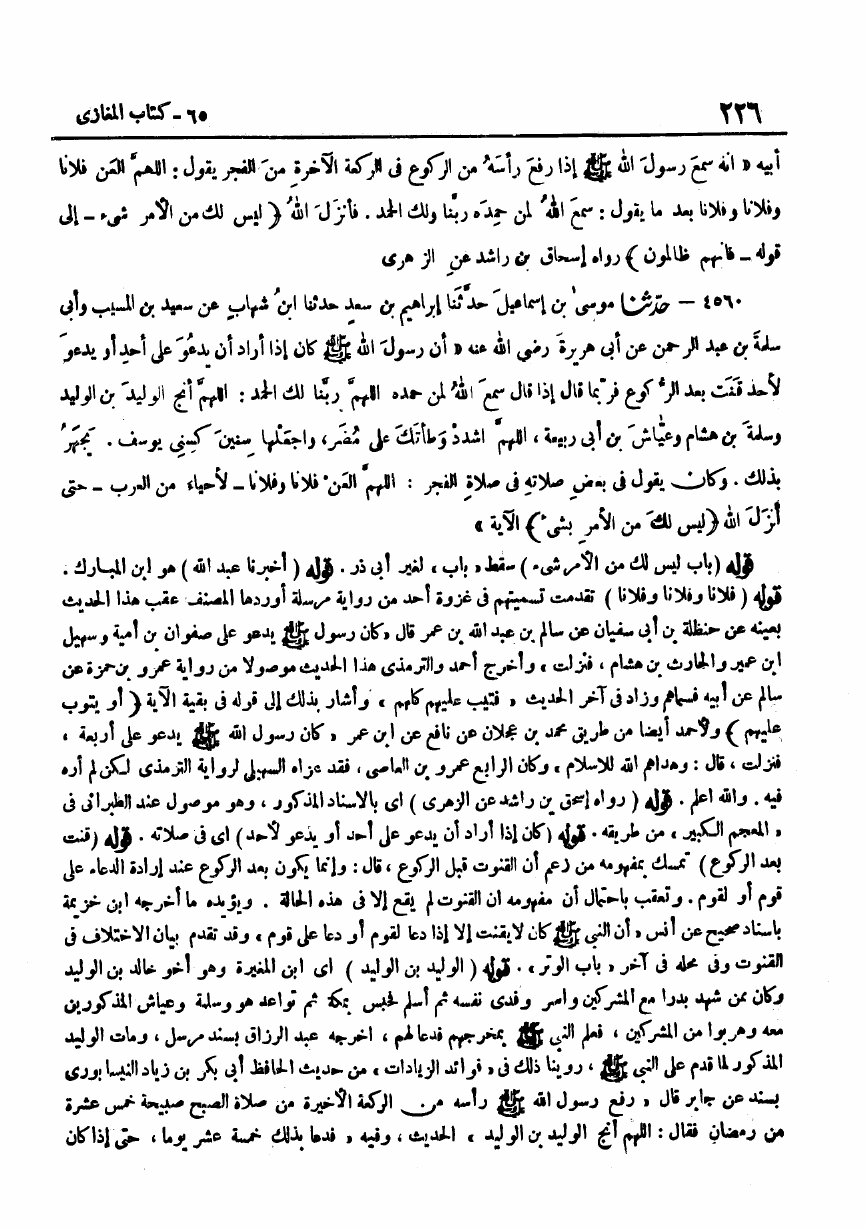 ٢٢٦
٦٥ - كتاب المغازى
أبيه « انه سمعَ رسولَ الله ﷺ إذا رفعَ رأسَهُ من الركوع فى الركعة الآخرةِ منَ الفجر يقول : اللهمَّ العَن فلانا
وفلانا وفلانا بعد ما يقول : سمعَ اللهُ لمن حمِدَه ربَّنا ولك الحمد . فأنزَلَ اللهُ ﴿ ليس لك من الأمر شىء - إلى
قوله - فانهم ظالمون ﴾ رواه إسحاق بن راشد عنِ الزهرى
٤٥٦٠ - حدّثنا موسىٰ بن إسماعيلَ حدَّثَنا إبراهيم بن سعدٍ حدثنا ابنُ شهابٍ عن سعيد بن المسيب وأبى
سلمةَ بن عبد الرحمن عن أبى هريرةَ رضى الله عنه « أن رسولَ الله ﷺ كان إذا أراد أن يدعُوَ على أحدٍ أو يدعوَ
لأحد قَنَت بعد الركوع فربّما قال إذا قال سمعَ اللهُ لمن حمده اللهمَّ ربَّنا لك الحمد : اللهمَّ أنج الوليدَ بن الوليد
وسلمةَ بن هشام وعيّاشَ بن أبى ربيعة ، اللهمَّ اشددْ وَطأتَكَ على مُضَر ، واجعَلْها سِنينَ كسِنِى يوسف . يَجهَرُ
بذلك . وكان يقول فى بعضِ صلاتهِ فى صلاةِ الفجر : اللهمَّ العَنْ فلانا وفلانا - لأحياء من العرب - حتى
أنزَلَ الله ﴿ليس لكَ من الأمرِ بشىء﴾ الآية »
قوله (باب ليس لك من الأمر شىء) سقط « باب » لغير أبى ذر . قوله ( أخبرنا عبد الله ) هو ابن المبارك .
قوله ( فلانا وفلانا وفلانا ) تقدمت تسميتهم فى غزوة أحد من رواية مرسلة أوردها المصنف عقب هذا الحديث
بعينه عن حنظلة بن أبى سفيان عن سالم بن عبد الله بن عمر قال « كان رسول ﷺ يدعو على صفوان بن أمية وسهيل
ابن عمير والحارث بن هشام ، فنزلت » وأخرج أحمد والترمذى هذا الحديث موصولا من رواية عمرو بن حمزة عن
سالم عن أبيه فسماهم وزاد فى آخر الحديث « فتيب عليهم كلهم » وأشار بذلك إلى قوله فى بقية الآية ﴿ أو يتوب
عليهم ﴾ ولأحمد أيضا من طريق محمد بن عجلان عن نافع عن ابن عمر « كان رسول الله ﷺ يدعو على أربعة ،
فنزلت ، قال : وهداهم الله للاسلام » وكان الرابع عمرو بن العاصى ، فقد عزاه السهيلى لرواية الترمذى لكن لم أره
فيه . والله اعلم . قوله ( رواه إسحق بن راشد عن الزهرى ) اى بالاسناد المذكور ، وهو موصول عند الطبرانى فى
« المعجم الكبير » من طريقه . قوله (كان إذا أراد أن يدعو على أحد أو يدعو لأحد) اى فى صلاته . قوله (قنت
بعد الركوع) تمسك بمفهومه من زعم أن القنوت قبل الركوع ، قال : وإنما يكون بعد الركوع عند إرادة الدعاء على
قوم أو لقوم . وتعقب باحتمال أن مفهومه ان القنوت لم يقع إلا فى هذه الحالة . ويؤيده ما أخرجه ابن خزيمة
باسناد صحيح عن أنس « أن النبى ﷺ كان لا يقنت إلا إذا دعا لقوم أو دعا على قوم » وقد تقدم بيان الاختلاف فى
القنوت وفى محله فى آخر « باب الوتر » . قوله ( الوليد بن الوليد ) اى ابن المغيرة وهو أخو خالد بن الوليد
وكان ممن شهد بدرا مع المشركين واسر وفدى نفسه ثم أسلم فحبس بمكة ثم تواعد هو وسلمة وعياش المذكورين
معه وهربوا من المشركين ، فعلم النبى ﷺ بمخرجهم فدعا لهم ، اخرجه عبد الرزاق بسند مرسل ، ومات الوليد
المذكور لما قدم على النبى ﷺ ، روينا ذلك فى « فوائد الزيادات » من حديث الحافظ أبى بكر بن زياد النيسابورى
بسند عن جابر قال « رفع رسول الله ﷺ رأسه من الركعة الأخيرة من صلاة الصبح صبيحة خمس عشرة
من رمضان فقال : اللهم أنج الوليد بن الوليد » الحديث ، وفيه « فدعا بذلك خمسة عشر يوما ، حتى إذا كان